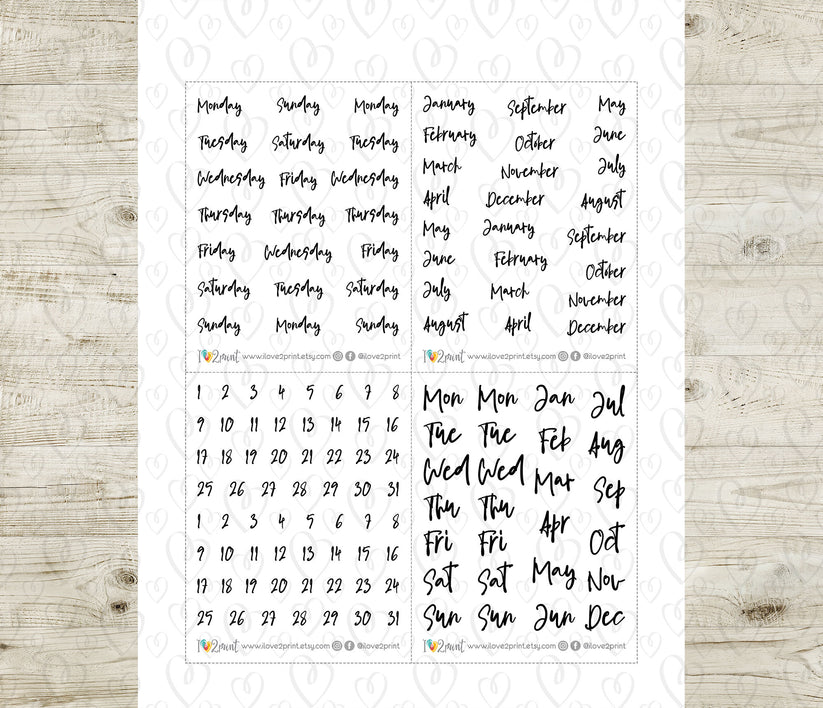 Monday Sunday Monday
Tuesday Saturday Tuesday
Wednesday Friday Wednesday
Thursday Thursday Thursday
Friday Wednesday Friday
Saturday Tuesday Saturday
Sunday Monday Sunday
I 2print www.ilove2print.etsy.com @ilove2print
January September May
February October June
March November July
April December August
May January September
June February October
July March November
August April December
I 2print www.ilove2print.etsy.com @ilove2print
1 2 3 4 5 6 7 8
9 10 11 12 13 14 15 16
17 18 19 20 21 22 23 24
25 26 27 28 29 30 31
1 2 3 4 5 6 7 8
9 10 11 12 13 14 15 16
17 18 19 20 21 22 23 24
25 26 27 28 29 30 31
I 2print www.ilove2print.etsy.com @ilove2print
Mon Mon Jan Jul
Tue Tue Feb Aug
Wed Wed Mar Sep
Thu Thu Apr
Fri Fri Oct
Sat Sat May Nov
Sun Sun Jun Dec
I 2print www.ilove2print.etsy.com @ilove2print